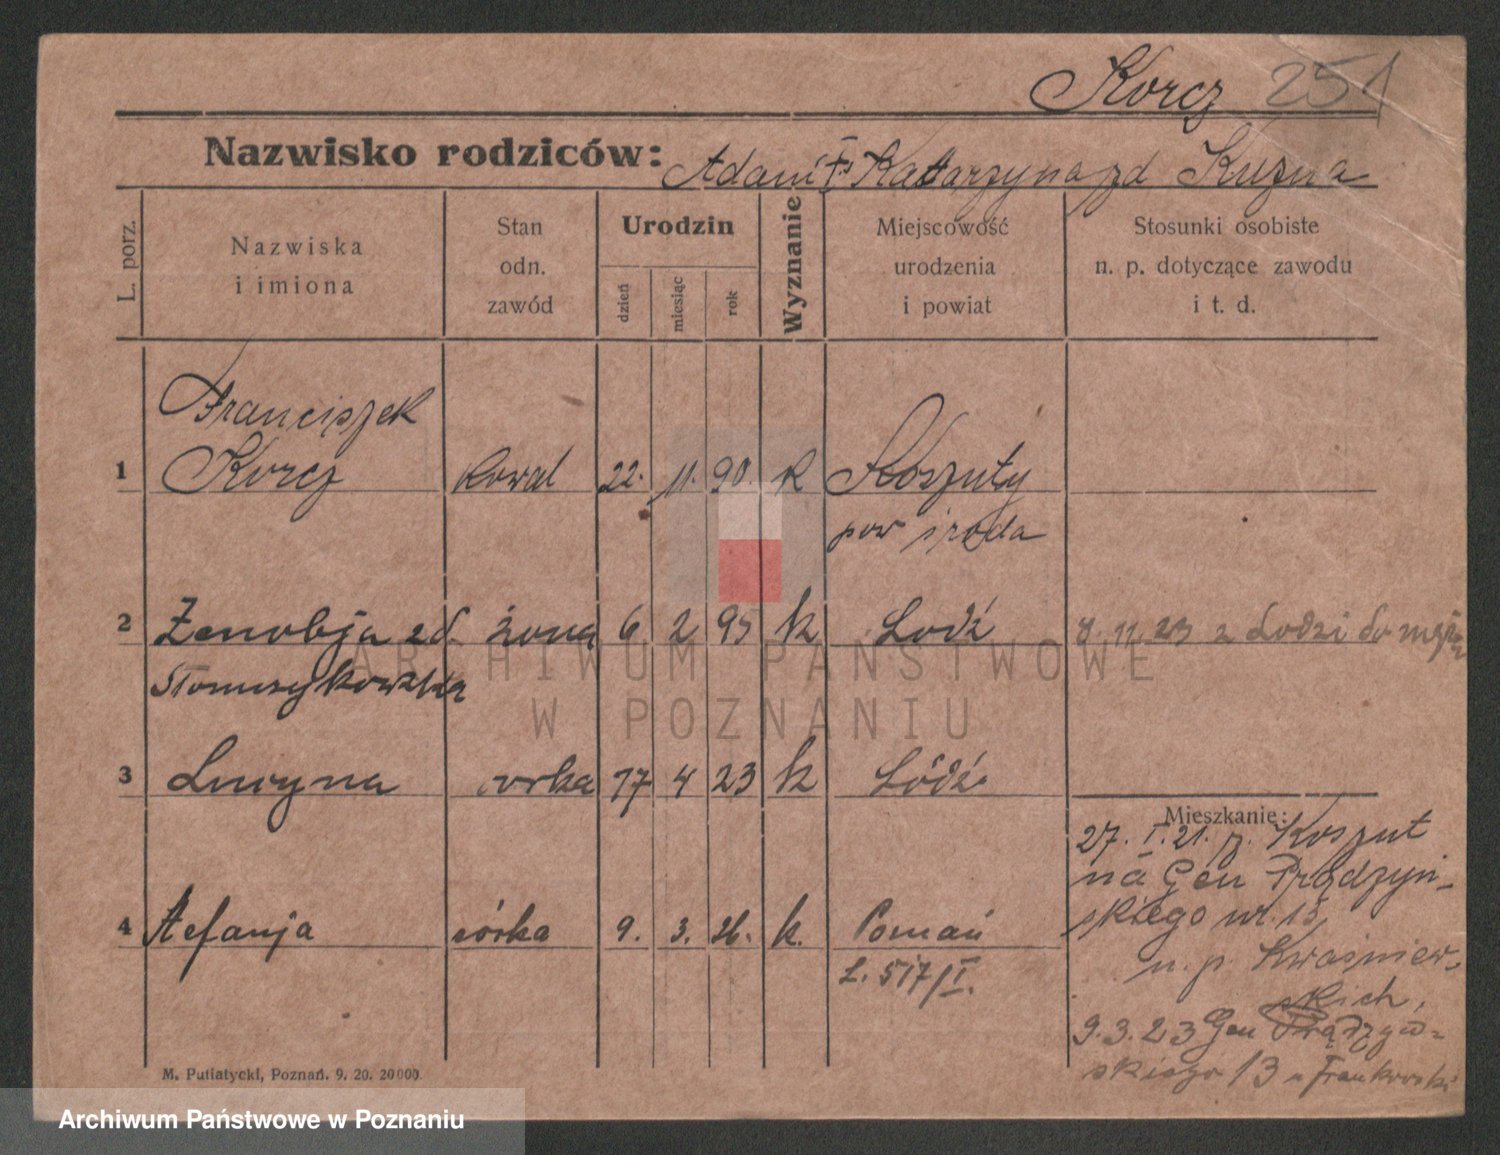 Korcz 251
Nazwisko rodziców: Adam i Katarzyna zd Kuzna
L. porz.
Nazwiska
i imiona
Stan
odn.
zawód
Urodzin
dzień
miesiąc
rok
Wyznanie
Miejscowość
urodzenia
i powiat
Stosunki osobiste
n. p. dotyczące zawodu
i t. d.
Franciszek
1 Korcz kowal 22. 11. 90. k Koszuty
pow środa
2 Zenobja zd. żona 6 2 95 k Łodź 8. 11. 23 z Łodzi do męża
3 Lucyna córka 17 4 23 k Łódź
Mieszkanie:
27. I. 21. z. Koszut
na Gen Prądzyń-
4 Stefanja córka 9. 3. 26. k. Poznań
skiego nr. 13
L. 517/I.
u. p. Kwaśniew-
skich,
9.3.23 Gen Prądzyń-
skiego 13 u Frankowski
M. Putiatycki, Poznań. 9. 20. 20000.
ARCHIWUM PAŃSTWOWE
W POZNANIU
Archiwum Państwowe w Poznaniu